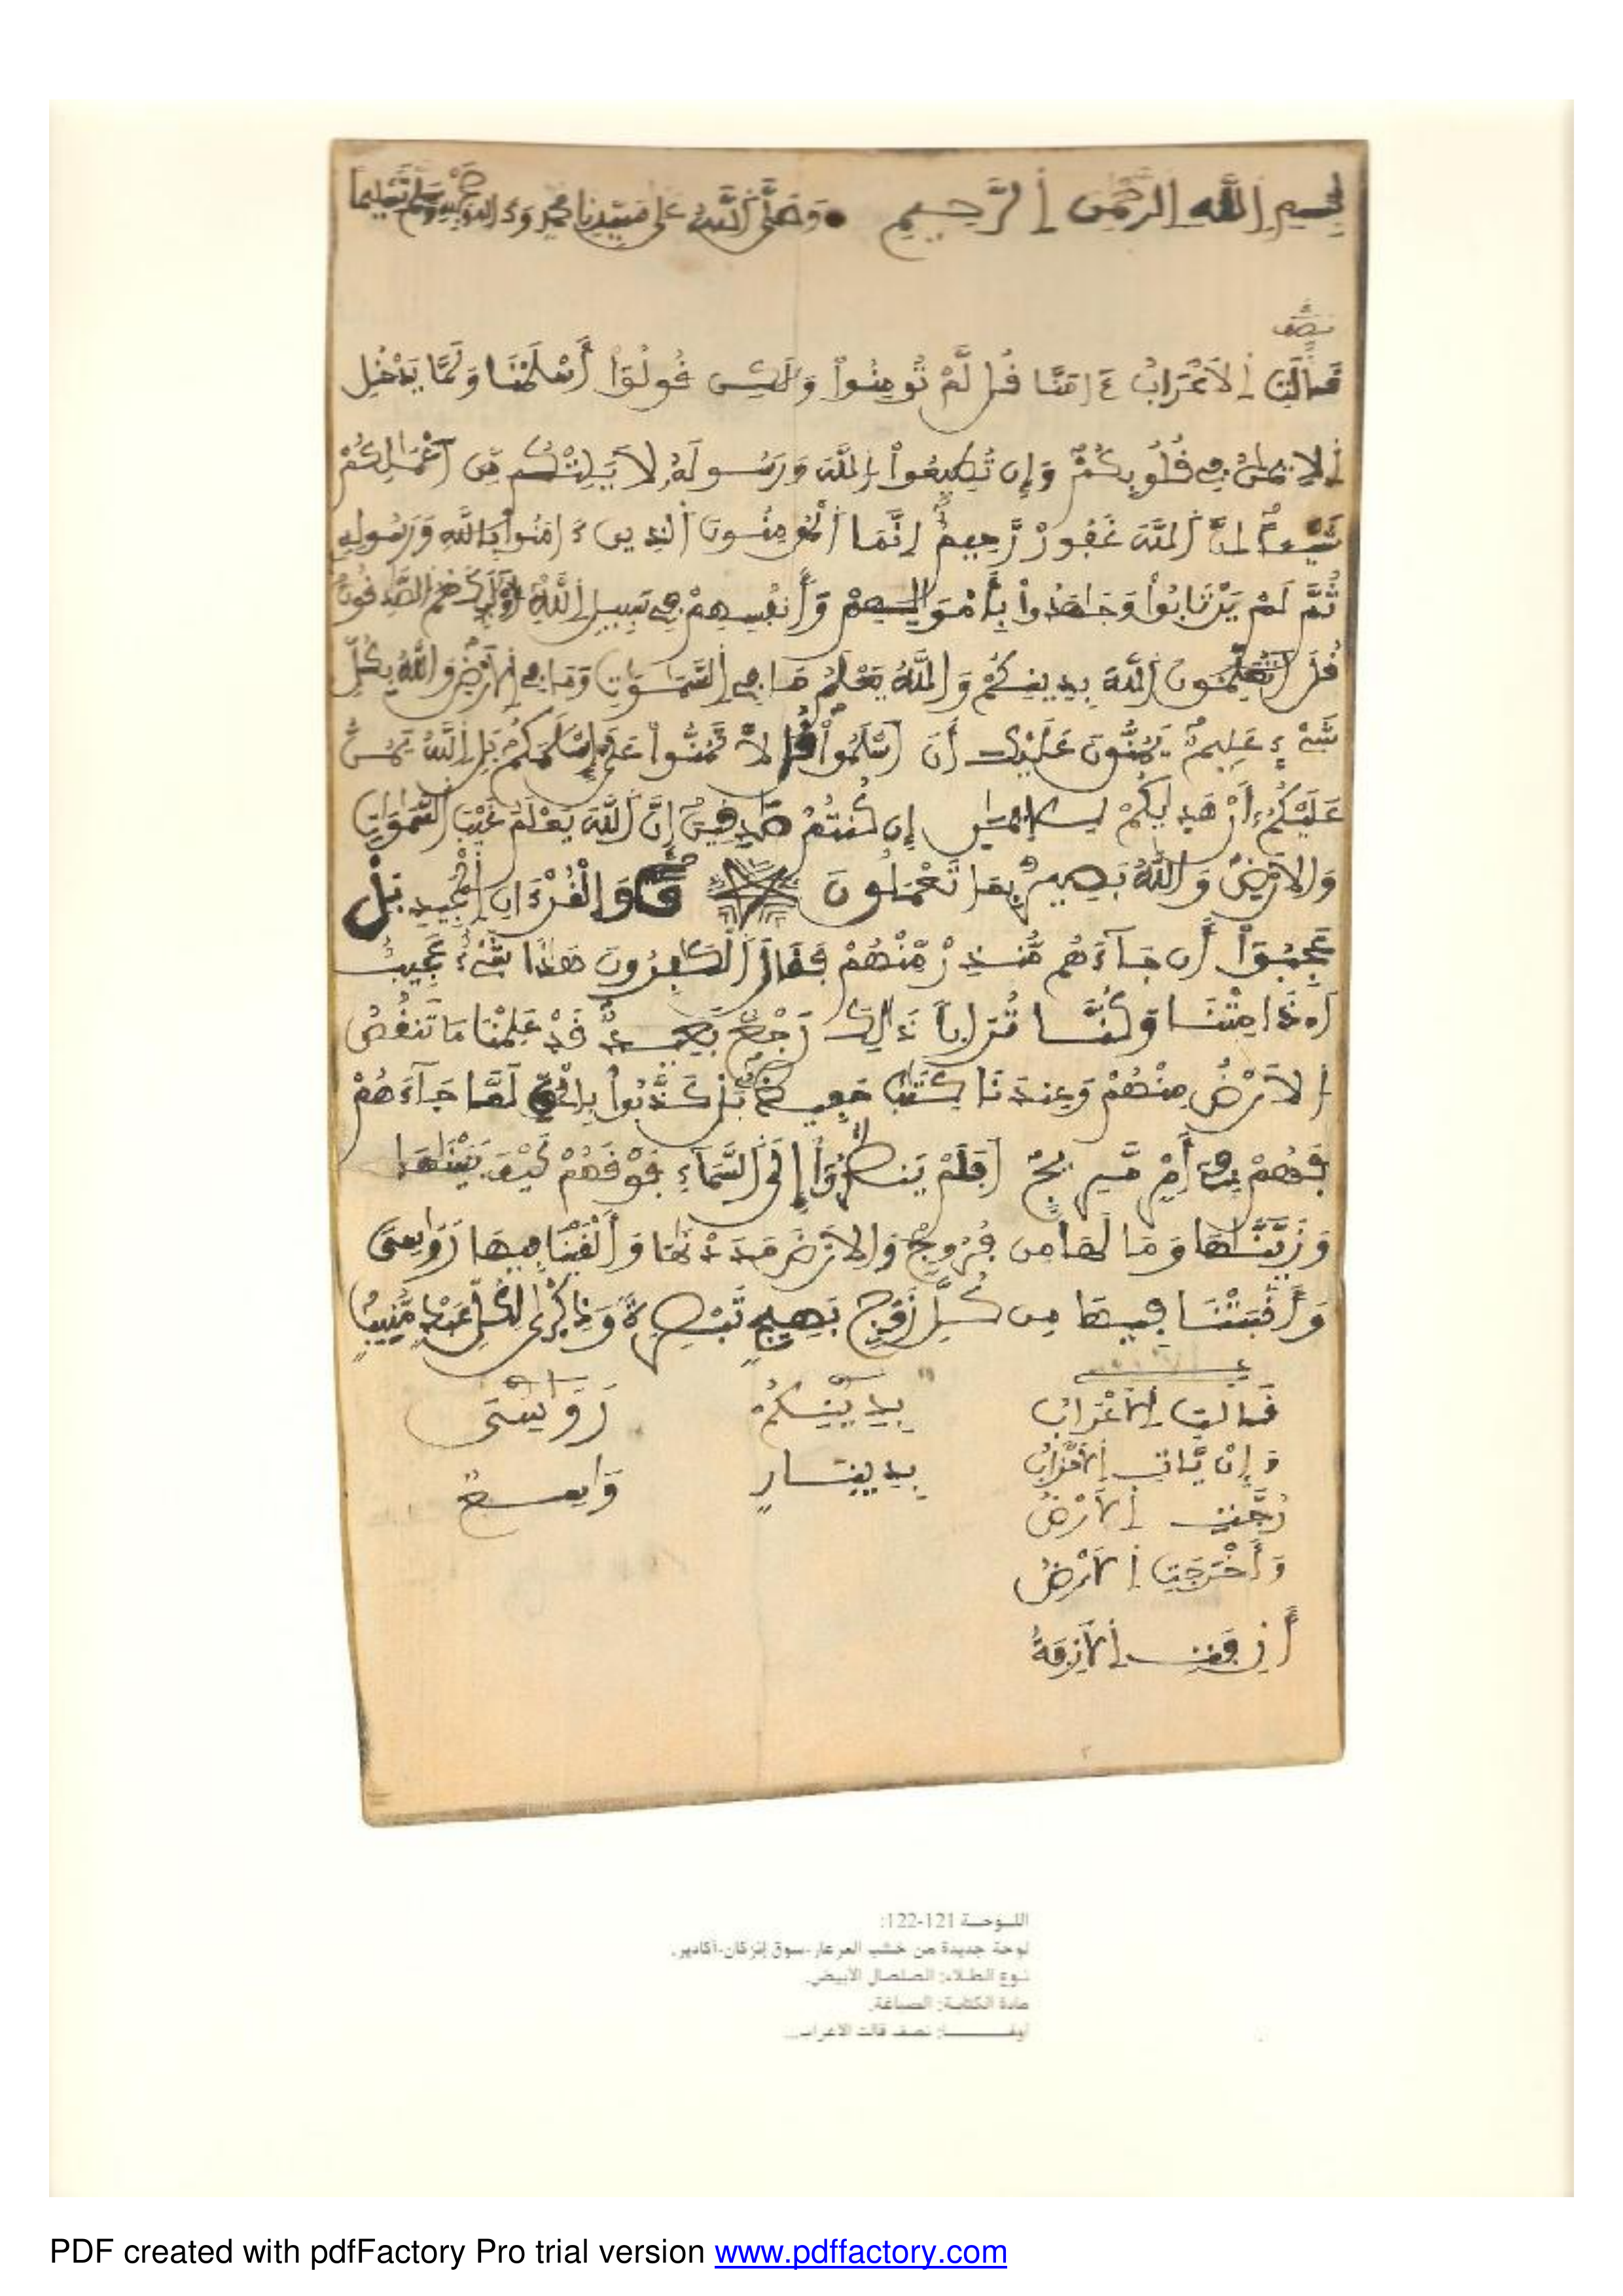 بِسْمِ اِللَّهِ اِلرَّحْمَٰنِ اِلرَّحِيمِ • وَصَلَّى اَللَّهُ عَلَى سَيِّدِنَا مُحَمَّدٍ وَءَالِهِ وَصَحْبِهِ وَسَلَّمَ تَسْلِيماً
نصف
قَالَتِ اِلَاعْرَابُ ءَامَنَّا قُل لَّمْ تُومِنُواْ وَلَٰكِن قُولُوٓاْ أَسْلَمْنَا وَلَمَّا يَدْخُلِ
اِلِايمَٰنُ فِي قُلُوبِكُمْ وَإِن تُطِيعُواْ اُللَّهَ وَرَسُولَهُ لَا يَلِتْكُم مِّنَ اَعْمَٰلِكُمْ
شَيْـًٔا اِنَّ اَللَّهَ غَفُورٌ رَّحِيمٌ اِنَّمَا اَلْمُومِنُونَ اَلذِينَ ءَامَنُواْ بِاللَّهِ وَرَسُولِهِ
ثُمَّ لَمْ يَرْتَابُواْ وَجَٰهَدُواْ بِأَمْوَٰلِهِمْ وَأَنفُسِهِمْ فِي سَبِيلِ اِللَّهِ أُوْلَٰٓئِكَ هُمُ اُلصَّٰدِقُونَ
قُلَ اَتُعَلِّمُونَ اَللَّهَ بِدِينِكُمْ وَاللَّهُ يَعْلَمُ مَا فِي اِلسَّمَٰوَٰتِ وَمَا فِي اِلَارْضِ وَاللَّهُ بِكُلِّ
شَيْءٍ عَلِيمٌ يَمُنُّونَ عَلَيْكَ أَنَ اَسْلَمُواْ قُل لَّا تَمُنُّواْ عَلَيَّ إِسْلَٰمَكُم بَلِ اِللَّهُ يَمُنُّ
عَلَيْكُمُ أَنْ هَدَىٰكُمْ لِلِايمَٰنِ إِن كُنتُمْ صَٰدِقِينَ إِنَّ اَللَّهَ يَعْلَمُ غَيْبَ اَلسَّمَٰوَٰتِ
وَالَارْضِ وَاللَّهُ بَصِيرٌ بِمَا تَعْمَلُونَ قٓ وَالْقُرْءَانِ اِلْمَجِيدِ بَلْ
عَجِبُوٓاْ أَن جَآءَهُم مُّنذِرٌ مِّنْهُمْ فَقَالَ اَلْكَٰفِرُونَ هَٰذَا شَيْءٌ عَجِيبٌ
اَ۟ذَا مِتْنَا وَكُنَّا تُرَاباً ذَٰلِكَ رَجْعٌ بَعِيدٌ قَدْ عَلِمْنَا مَا تَنقُصُ
اُلَارْضُ مِنْهُمْ وَعِندَنَا كِتَٰبٌ حَفِيظٌ بَلْ كَذَّبُواْ بِالْحَقِّ لَمَّا جَآءَهُمْ
فَهُمْ فِي أَمْرٍ مَّرِيجٍ اَفَلَمْ يَنظُرُوٓاْ إِلَى اَلسَّمَآءِ فَوْقَهُمْ كَيْفَ بَنَيْنَٰهَا
وَزَيَّنَّٰهَا وَمَا لَهَا مِن فُرُوجٍ وَالَارْضَ مَدَدْنَٰهَا وَأَلْقَيْنَا فِيهَا رَوَٰسِيَ
وَأَنۢبَتْنَا فِيهَا مِن كُلِّ زَوْجٍ بَهِيجٍ تَبْصِرَةً وَذِكْرَىٰ لِكُلِّ عَبْدٍ مُّنِيبٍ
قَالَتِ اِلَاعْرَابُ بِدِينِكُمْ رَوَٰسِيَ
وَإِنْ يَّاتِ اِلَاحْزَابُ بِدِينَارٍ وَٰسِعٌ
رُجَّتِ اِلَارْضُ
وَأَخْرَجَتِ اِلَارْضُ
أَزِفَتِ اِلَازِفَةُ
اللـوحـة 121-122:
لوحة جديدة من خشب العرعار-سوق إنزكان-أكادير.
نـوع الطـلاء: الصلصال الأبيض.
مادة الكتابـة: الصماغة.
نصف قالت الاعراب...
PDF created with pdfFactory Pro trial version www.pdffactory.com